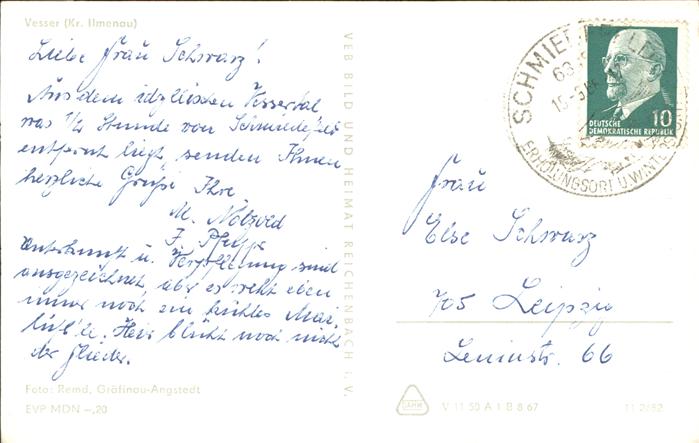 Vesser (Kr. Ilmenau)
Liebe Frau Schwarz!
Aus dem idyllischen Vessertal
was 1/2 Stunde von Schmiedefeld
entfernt liegt, senden Ihnen
herzliche Grüße Ihre
M.
J.
Unterkunft u. Verpflegung sind
ausgezeichnet, aber es weht eben
immer noch ein kühles Mai-
lüft'le. Hier blüht noch nicht
der Flieder.
Foto: Remd, Gräfinau-Angstedt
EVP MDN –,20
VEB BILD UND HEIMAT REICHENBACH i. V.
SCHMIEDEFELD
ERHOLUNGSORT U. WINTERSPORT
10
DEUTSCHE
DEMOKRATISCHE REPUBLIK
Frau
Else Schwarz
705 Leipzig
Leninstr. 66
V 11 50 A 1 B 8 67